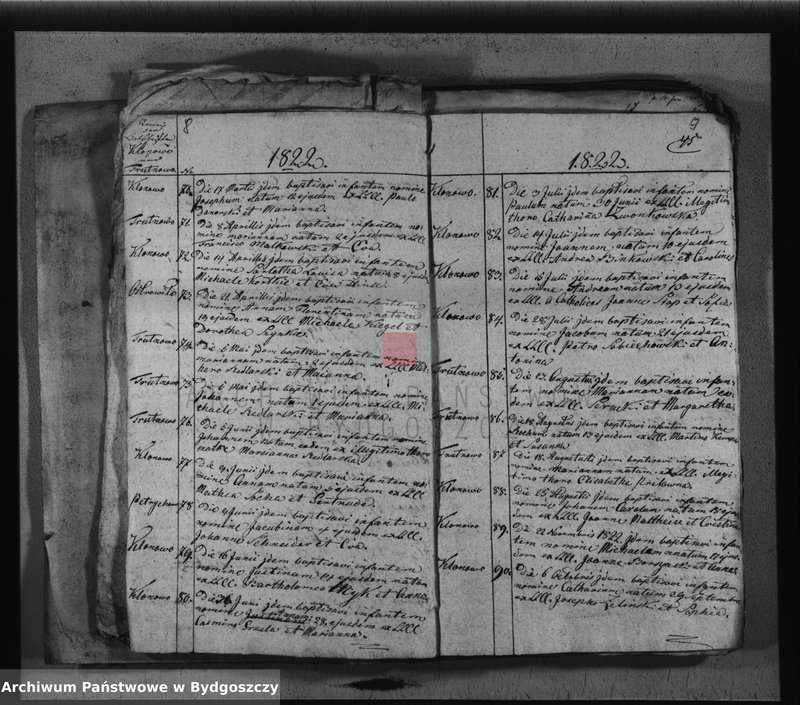 8
1822.
Klonowo
Trutnowo No
Klonowo 70. Die 17 Martii jdem baptisavi infantem nomine
Josephum natum 12 ejusdem ex LLL Paulo
et Marianna.
Trutnowo 71. Die 8 Aprillis jdem baptisavi infantem no-
mine mariannam natam 2 ejusdem ex LLL
Francisco Malkowski et Eva.
Klonowo 72. Die 14 Aprillis jdem baptisavi infantem
nomine Louisa natam 8 ejusd.
Michaele et
73. Die 21 Aprillis jdem baptisavi infantem
nomine Annam Florentinam natam
19 ejusdem ex LLL Michaele Kiegel et
Dorothea
Trutnowo 74. Die 5 Mai jdem baptisavi infantem nomine
mariannam natam 2 ejusdem ex LLL
Sedlarski et Marianna.
Trutnowo 75. Die 6 Mai jdem baptisavi infantem nomine
Johannem natum 2 ejusdem ex LLL Mi-
chaele Sedlarski et Marianna.
Trutnowo 76. Die 6 Junii jdem baptisavi infantem nomine
Johannem natum eodem ex illegitimo thoro
matre Marianna Sedlarska.
Klonowo 77. Die 9 Junii jdem baptisavi infantem no-
mine Annam natam 5 ejusdem ex LLL
Mathea et Gertrude.
78. Die 9 Junii jdem baptisavi infantem
nomine Jacobinam 4 ejusdem ex LLL
Johanne Schneider et Eva.
Klonowo 79. Die 16 Junii jdem baptisavi infantem
nomine Justinam 14 ejusdem natam
ex LLL Bartholomeo Myk et Anna.
Klonowo 80. Die 30 Junii jdem baptisavi infantem
nomine 28 ejusdem ex LLL
Casimiro et Marianna.
17
9
45
1822.
Klonowo. 81. Die 3 Julii jdem baptisavi infantem nomine
Paulum natum 30 Junii ex LLL. illegitim
thoro Catharina Dwonkowska.
Klonowo 82. Die 14 Julii jdem baptisavi infantem
nomine Joannem natum 10 ejusdem
ex LLL. Andrea Binkowski et Carolina
Klonowo 83. Die 16 Julii jdem baptisavi infantem
nomine Andream natum 13 ejusdem
ex LLL. a Catholicis Joanne Pisp et Sofia
Klonowo 84. Die 28 Julii jdem baptisavi infantem
nomine Jacobum natum 21 ejusdem
ex LLL. Petro Sobiechowski et An-
tonina
Trutnowo 85. Die 13 Augusti jdem baptisavi infan-
tem nomine Mariannam natam eo-
dem ex LLL. et Margaretha.
Trutnowo 86. Die 18 Augustus jdem baptisavi infantem nomine
Rochum natum 13 ejusdem ex LLL. Martino
et Susanna
Trutnowo 87. Die 18 Augustus jdem baptisavi infantem
nomine Mariannam natam ex LLL. illegi-
timo thoro Elisabetha
Klonowo 88. Die 25 Augustus jdem baptisavi infantem
nomine Johannem Carolum natum 18 ejus-
dem ex LLL. Joanne Mattheus et Cristina
Klonowo 89. Die 22 1822 jdem baptisavi infan-
tem nomine Michaelem natum 19 ejus-
dem ex LLL. Joanne et Anna
Klonowo 90. Die 6 Octobris jdem baptisavi infantem
nomine Catharinam natam 29 septembris
ex LLL. Josepho Zelinski et Sophia.
Archiwum Państwowe w Bydgoszczy